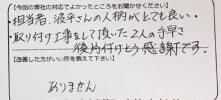 【今回の弊社の対応でよかったところをお聞かせください】
・担当者、波平さんの人柄がとても良い。
・取り付け工事をして頂いた2人の手早さ
後片付けもう感謝です。
【改善した方がいい所を教えて下さい】
ありません